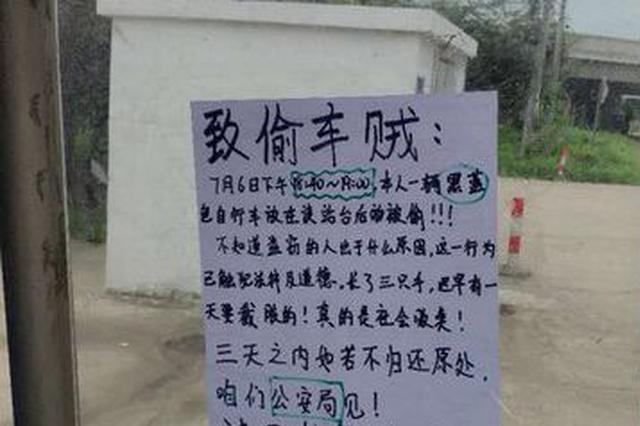 致偷车贼:
7月6日下午18:40~19:00,本人一辆黑蓝
色自行车放在该站台后动被偷!!!
不知道盗窃的人出于什么原因,这一行为
已触犯法律及道德。长了三只手,迟早有一
天要栽跟的!真的是社会败类!
三天之内如若不归还原处,
咱们公安局见!